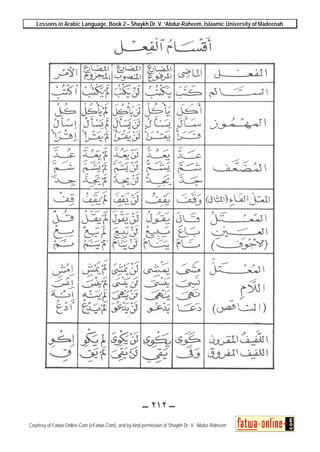 Lessons in Arabic Language, Book 2 – Shaykh Dr. V. 'Abdur-Raheem, Islaamic University of Madeenah
أَقْسَامُ ٱلْفِعْلِ
الفعل الماضي المضارع المرفوع المضارع المنصوب المضارع المجزوم الأمر
السالم كَتَبَ يَكْتُبُ لَنْ يَكْتُبَ لَمْ يَكْتُبْ اُكْتُبْ
المهموز أَكَلَ يَأْكُلُ لَنْ يَأْكُلَ لَمْ يَأْكُلْ كُلْ
سَأَلَ يَسْأَلُ لَنْ يَسْأَلَ لَمْ يَسْأَلْ اِسْأَلْ
قَرَأَ يَقْرَأُ لَنْ يَقْرَأَ لَمْ يَقْرَأْ اِقْرَأْ
المُضَعَّف عَدَّ يَعُدُّ لَنْ يَعُدَّ لَمْ يَعُدَّ عُدَّ
شَمَّ يَشَمُّ لَنْ يَشَمَّ لَمْ يَشَمَّ شَمَّ
جَدَّ يَجِدُّ لَنْ يَجِدَّ لَمْ يَجِدَّ جِدَّ
المعتل الفاء (المثال) وَقَفَ يَقِفُ لَنْ يَقِفَ لَمْ يَقِفْ قِفْ
المُعْتَلُّ قَالَ يَقُولُ لَنْ يَقُولَ لَمْ يَقُلْ قُلْ
العين بَاعَ يَبِيعُ لَنْ يَبِيعَ لَمْ يَبِعْ بِعْ
(الأجوف) نَامَ يَنَامُ لَنْ يَنَامَ لَمْ يَنَمْ نَمْ
المُعْتَلُّ مَشَى يَمْشِي لَنْ يَمْشِيَ لَمْ يَمْشِ اِمْشِ
اللَّامِ نَسِيَ يَنْسَى لَنْ يَنْسَى لَمْ يَنْسَ اِنْسَ
نَهَى يَنْهَى لَنْ يَنْهَى لَمْ يَنْهَ اِنْهَ
(الناقص) دَعَا يَدْعُو لَنْ يَدْعُوَ لَمْ يَدْعُ اُدْعُ
اللَّفِيفُ المقرون كَوَى يَكْوِي لَنْ يَكْوِيَ لَمْ يَكْوِ اِكْوِ
اللفيف المفروق وَقَى يَقِي لَنْ يَقِيَ لَمْ يَقِ قِ
— ٢١٢ —
Courtesy of Fatwa-Online.Com (eFatwa.Com), and by kind permission of Shaykh Dr. V. 'Abdur-Raheem
fatwa-online.com